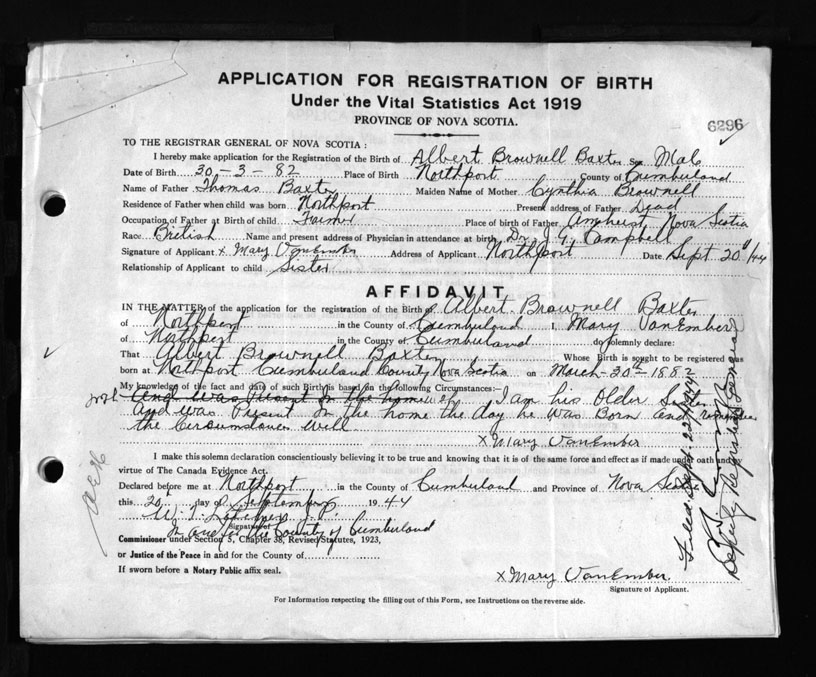 APPLICATION FOR REGISTRATION OF BIRTH
Under the Vital Statistics Act 1919
PROVINCE OF NOVA SCOTIA.
6296
TO THE REGISTRAR GENERAL OF NOVA SCOTIA:
I hereby make application for the Registration of the Birth of Albert Brownell Baxter Sex Male
Date of Birth 30-3-82 Place of Birth Northport County of Cumberland
Name of Father Thomas Baxter Maiden Name of Mother Cynthia Brownell
Residence of Father when child was born Northport Present address of Father Dead
Occupation of Father at Birth of child Farmer Place of birth of Father Amherst Nova Scotia
Race British Name and present address of Physician in attendance at birth Dr. J. G. Campbell
Signature of Applicant x Mary VanEmber Address of Applicant Northport Date Sept 20th/44
Relationship of Applicant to child Sister
AFFIDAVIT
IN THE MATTER of the application for the registration of the Birth of Albert Brownell Baxter
of Northport in the County of Cumberland I, Mary VanEmber
of Northport in the County of Cumberland do solemnly declare:
That Albert Brownell Baxter Whose Birth is sought to be registered was
born at Northport Cumberland County Nova Scotia on March 30th 1882
My knowledge of the fact and date of such Birth is based on the following Circumstances:—
And was Present in the home I am his Older Sister
And was Present in the home the day he was Born and remember
the Circumstances well
x Mary VanEmber
I make this solemn declaration conscientiously believing it to be true and knowing that it is of the same force and effect as if made under oath and by
virtue of The Canada Evidence Act.
Declared before me at Northport in the County of Cumberland and Province of Nova Scotia
this 20 day of September 1944
J. P.
Signature of
In and for the County of Cumberland
Commissioner under Section 5, Chapter 38, Revised Statutes, 1923,
or Justice of the Peace in and for the County of
If sworn before a Notary Public affix seal.
x Mary VanEmber.
Signature of Applicant.
For Information respecting the filling out of this Form, see Instructions on the reverse side.
Filed Sept. 22/1944
Deputy Registrar General